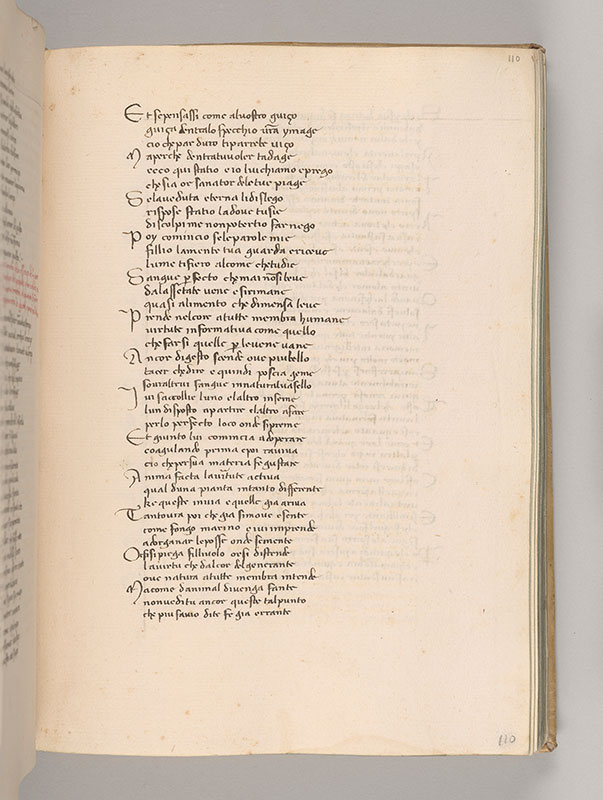 110
Et sepensassi come aluostro guiço
guiça dentralo specchio ura ymage
cio chepar duro tiparrete uiço
Maperche dentratuuoler tadage
ecco qui statio e io luichiamo e prego
chesia or sanator deletue piage
Selaueduta eterna lidislego
rispose statio ladoue tusie
discolpi me nonpotertio far nego
Poy comincio seleparole mie
fillio lamente tua guarda ericeue
lume tifiero alcome chetudie
Sangue pfecto chemai nosi beue
dalassetate uene esirimane
quasi alimento che dimensa leue
Prende nelcore atutte membra humane
virtute informatiua come quello
chefarsi quelle p leuene uane
Ancor digesto scende oue piubello
tacer chedire e quindi poscia geme
souraltrui sangue innaturaluasello
Iui saccollie luno elaltro inseme
lun disposto apartire elaltro afare
perlo perfecto loco onde sipreme
Et giunto lui comincia adoperare
coagulando prima epoi rauiua
cio chepersua materia fe gustare
Anima facta lauirtute actiua
qual duna pianta intanto differente
ke queste inuia e quelle gia ariua
Tantoura poi che gia simoue e sente
come fongo marino e iui imprende
adorganar leposse onde semente
Orsi spiega filliuolo orsi distende
lauirtu che dalcor delgenerante
oue natura atutte membra intende
Macome danimal diuenga fante
nonuedi tu ancor queste talpunto
che piu sauio dite fe gia errante
110